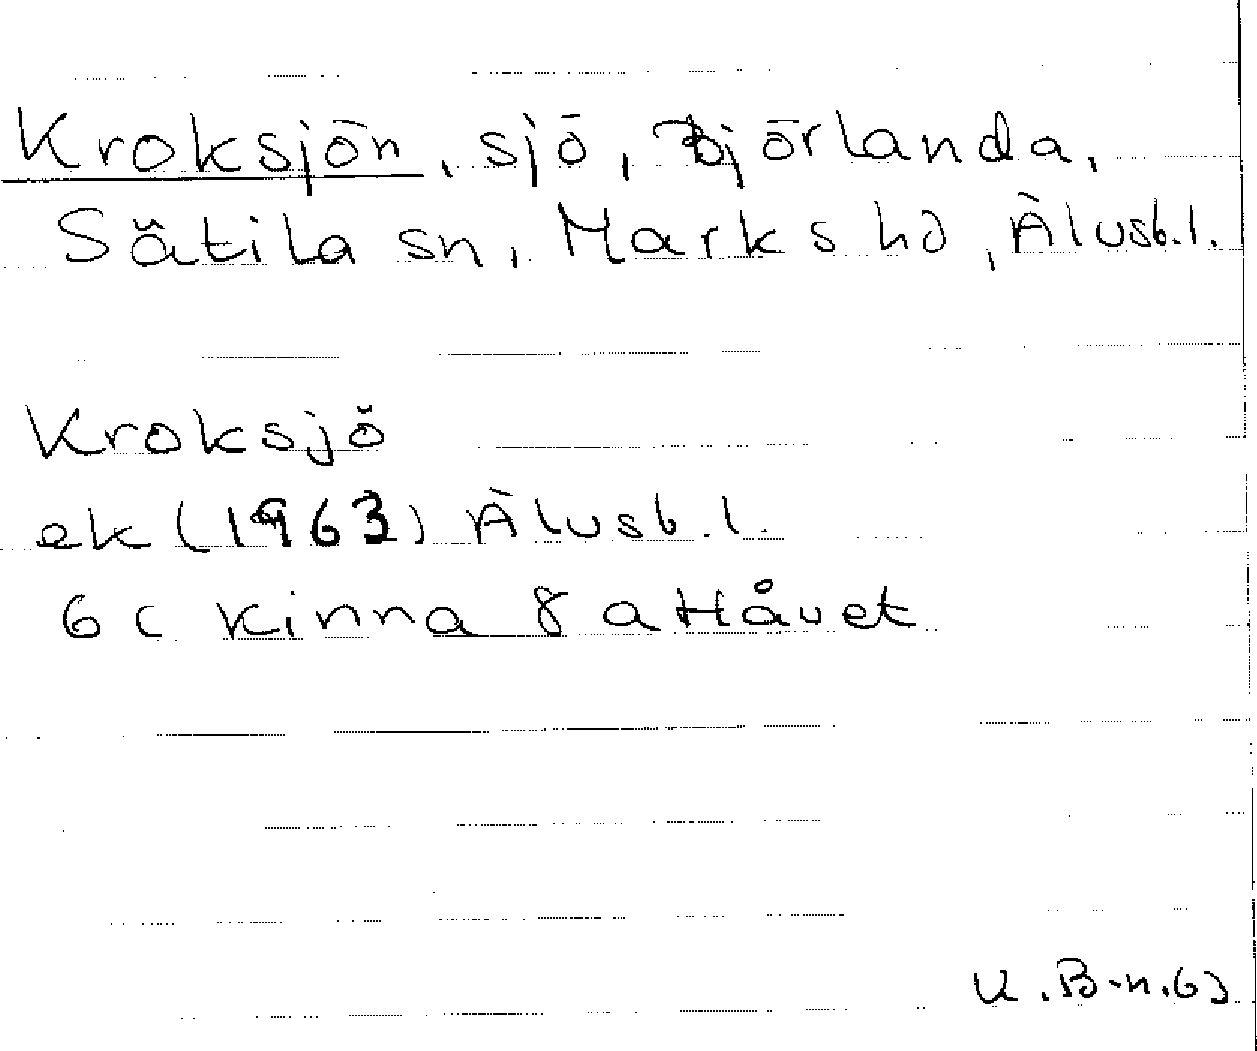 Kroksjön, sjö, Björlanda,
Sätila sn, Marks hd, Älvsb.l.
Kroksjö
ek (1963) Älvsb.l.
6 c Kinna 8 a Håvet
K.B-n.63